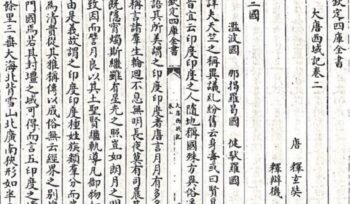 欽定四庫全書
大唐西域記卷二
唐 釋玄奘
釋辯機
三國
濫波國 那揭羅曷國 健馱邏國
詳夫天竺之稱異議糺紛舊云身毒或曰
音宜云印度印度之人隨地稱國殊方異俗
欽定四庫全書
大唐西域記
語其所美謂之印度印度者唐言月月有多
稱言羣生輪迴不息無明長夜莫有司
既隱宵燭斯繼雖有星光之照豈如朗月之明
致因而譬月良以其土聖賢繼軌導凡御物
由是義故謂之印度印度種姓族類羣分而
為清貴從其雅稱傳以成俗無云經界之別
門國焉若其封疆之域可得而言五印度之
餘里三垂大海北背雪山北廣南狹形如半